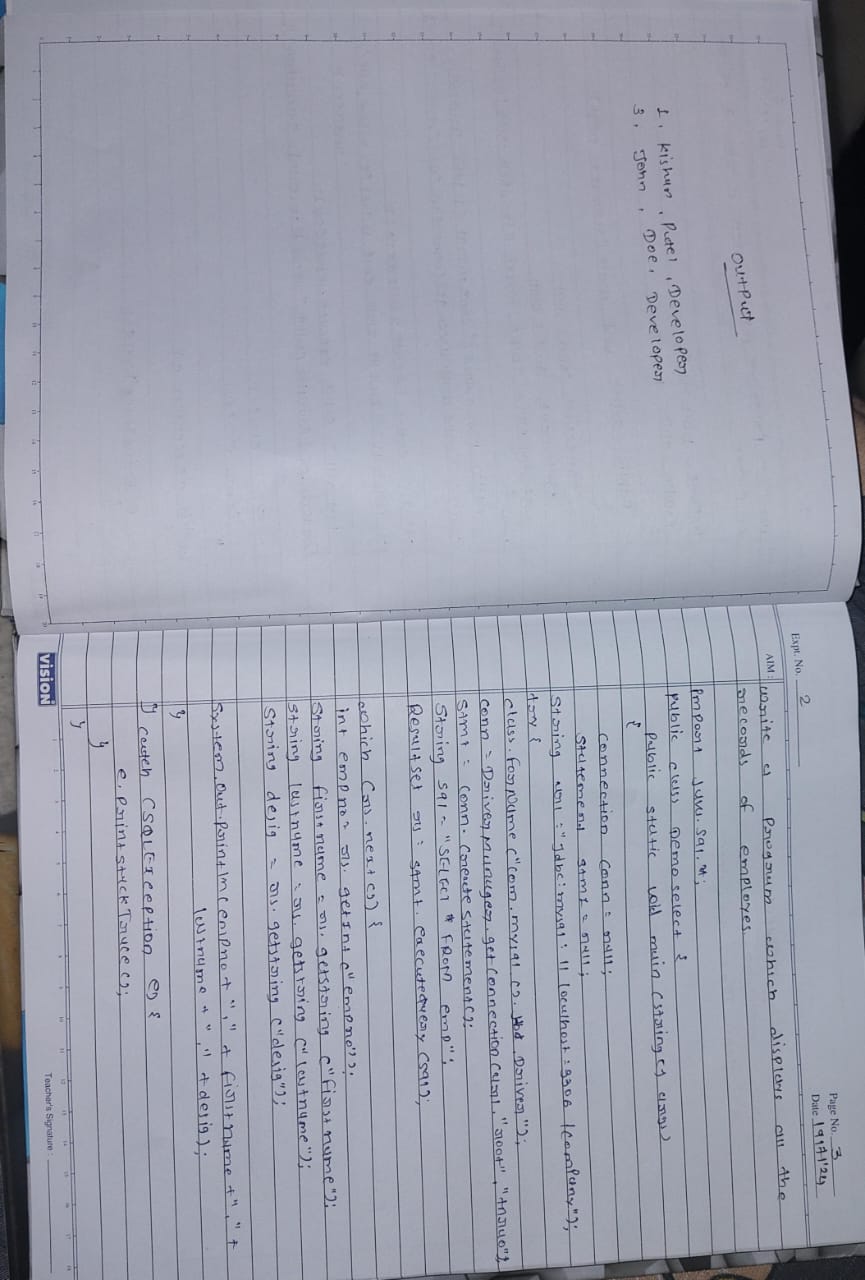 Output
1, Kishan, Patel, Developer
3, John, Doe, Developer
Expt. No. 2
Page No. 3
Date 19/7/24
AIM: Write a program which displays all the
records of employes.
import java.sql.*;
public class Demoselect {
public static void main (String [] args)
{
Connection conn = null;
Statement stmt = null;
String url = "jdbc:mysql://localhost:3306/company");
try {
class.forName ("com.mysql.cj. Driver");
conn = DriverManager.getConnection (url, "root",
stmt = conn.createstatement();
String sql = "SELECT * FROM emp";
Resultset rs = stmt.executequery (sql);
which (rs.next()) {
int empno = rs.getInt ("empno");
String firstname = rs.getstring ("firstname");
String lastname = rs.getstring ("lastname");
String desig = rs.getstring ("desig");
System.out.println (empno + "," + firstname + "," +
lastname + "," + desig);
}
} catch (SQLException e) {
e.printstackTrace();
}
}
VISION
Teacher's Signature :